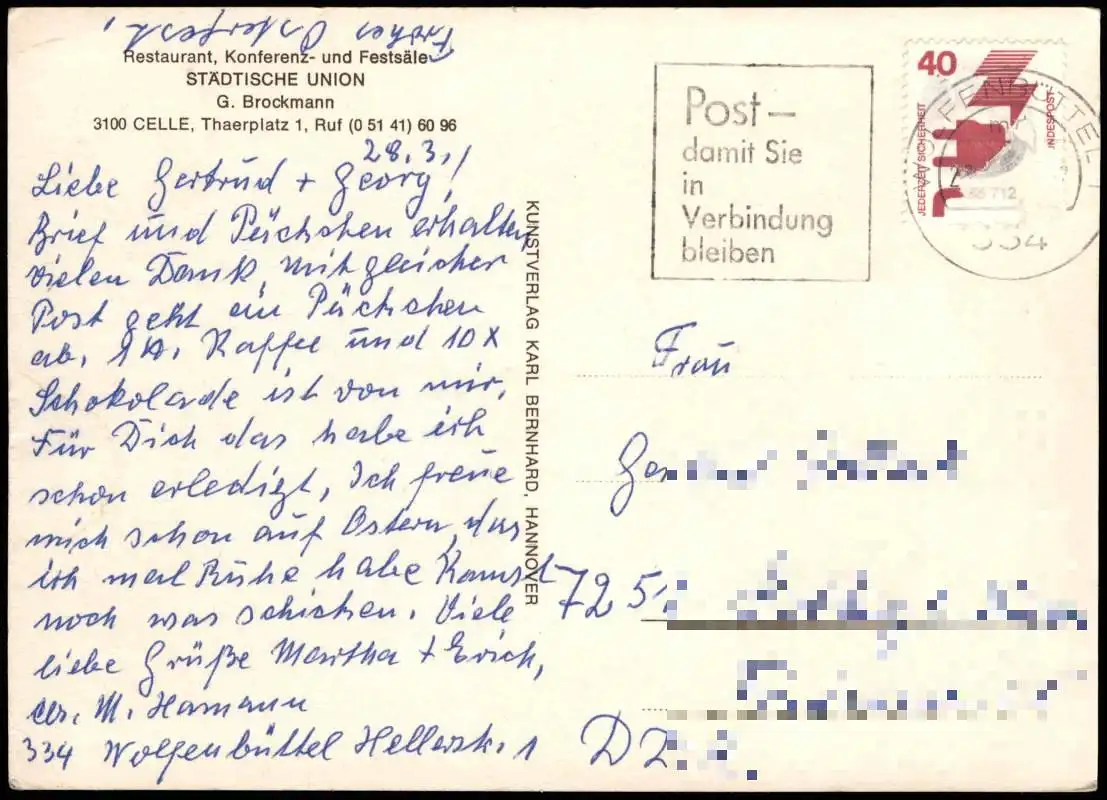 Frohes Osterfest,
Restaurant, Konferenz- und Festsäle
STÄDTISCHE UNION
G. Brockmann
3100 CELLE, Thaerplatz 1, Ruf (0 51 41) 60 96
28.3.
Liebe Gertrud + Georg!
Brief und Päckchen erhalten
vielen Dank, mit gleicher
Post geht ein Päckchen
ab. 1 Kaffee und 10x
Schokolade ist von mir.
Für Dich das habe ich
schon erledigt, Ich freue
mich schon auf Ostern, das
ich mal Ruhe habe Kannst
noch was schicken. Viele
liebe Grüße Martha + Erich,
M. Hamann
334 Wolfenbüttel Hellerstr. 1
KUNSTVERLAG KARL BERNHARD, HANNOVER
Post –
damit Sie
in
Verbindung
bleiben
40
JEDERZEIT SICHERHEIT
WOLFENBÜTTEL 1
334
Frau
Ge
725